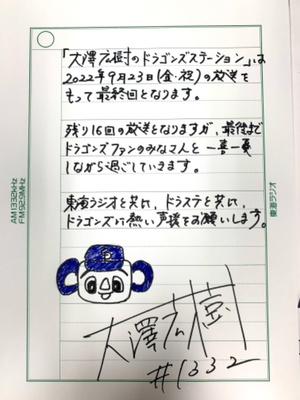 「大澤広樹のドラゴンズステーション」は
2022年9月23日(金・祝)の放送を
もって最終回となります。
残り16回の放送となりますが、最後まで
ドラゴンズファンのみなさんと一喜一憂
しながら過ごしていきます。
東海ラジオと共に、ドラステと共に、
ドラゴンズに熱い声援をお願いします。
大澤広樹
#1332
AM1332kHz
FM92.9MHz
東海ラジオ